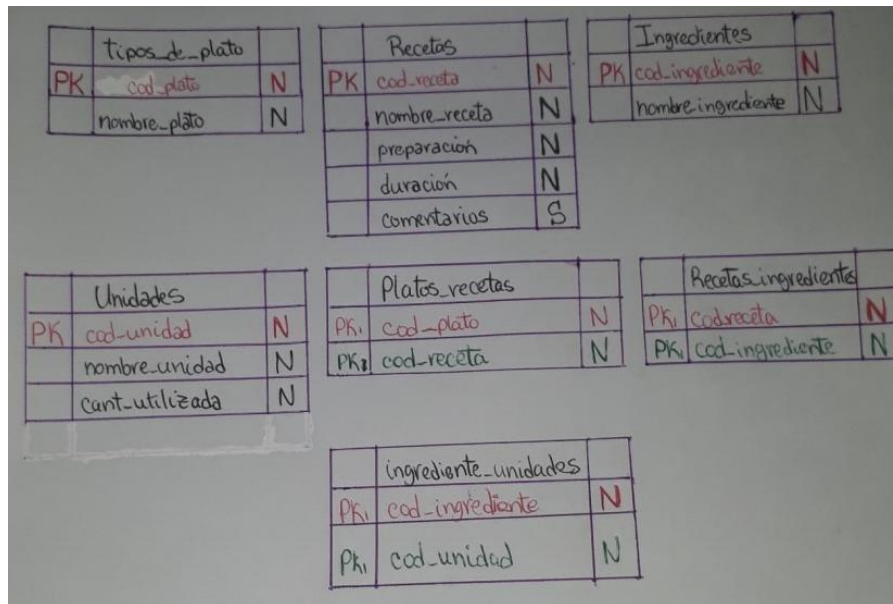 tipos_de_plato
PK cod_plato N
nombre_plato N
Recetas
PK cod_receta N
nombre_receta N
preparación N
duración N
comentarios S
Ingredientes
PK cod_ingrediente N
nombre ingrediente N
Unidades
PK cod_unidad N
nombre_unidad N
cant_utilizada N
Platos_recetas
PK1 cod_plato N
PK1 cod_receta N
Recetas_ingrediente
PK1 cod_receta N
PK1 cod_ingrediente N
ingrediente_unidades
PK1 cod_ingrediente N
PK1 cod_unidad N